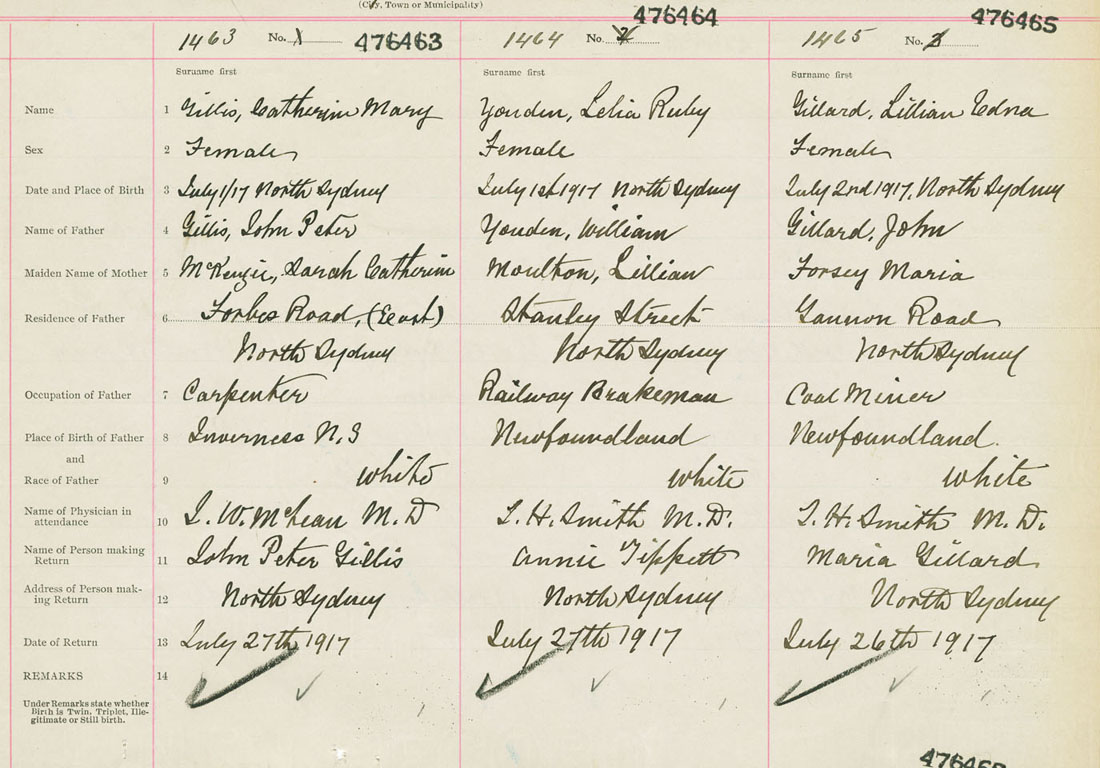 (City, Town or Municipality)
476464
476465
1463 No. 1 476463
1464 No. 2
1465 No. 3
Surname first
Surname first
Surname first
Name 1 Gillis, Catherine Mary
Youden, Lelia Ruby
Gillard, Lillian Edna
Sex 2 Female
Female
Female
Date and Place of Birth 3 July 1/17 North Sydney
July 1st 1917 North Sydney
July 2nd 1917, North Sydney
Name of Father 4 Gillis, John Peter
Youden, William
Gillard, John
Maiden Name of Mother 5 McKenzie, Sarah Catherine
Moulton, Lillian
Forsey Maria
Residence of Father 6 Forbes Road, (East)
Stanley Street
Gannon Road
North Sydney
North Sydney
North Sydney
Occupation of Father 7 Carpenter
Railway Brakeman
Coal Miner
Place of Birth of Father 8 Inverness N.S
Newfoundland
Newfoundland.
and
Race of Father 9 white
white
white
Name of Physician in
attendance 10 L. W. McLean M.D
L. H. Smith M.D.
L. H. Smith M.D.
Name of Person making
Return 11 John Peter Gillis
Annie Tippett
Maria Gillard
Address of Person mak-
ing Return 12 North Sydney
North Sydney
North Sydney
Date of Return 13 July 27th 1917
July 27th 1917
July 26th 1917
REMARKS 14
Under Remarks state whether
Birth is Twin, Triplet, Ille-
gitimate or Still birth.